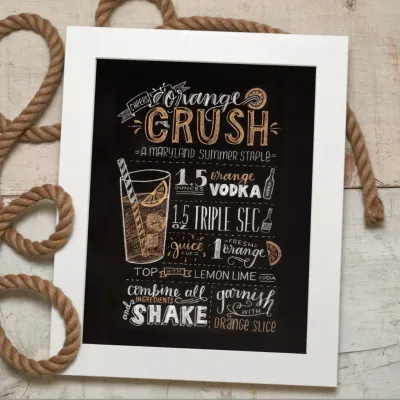 CHEERS!
orange
CRUSH
=A MARYLAND SUMMER STAPLE=
1.5 OUNCES orange VODKA
1.5 OZ. TRIPLE SEC
juice OF 1 FRESH orange
TOP WITH LEMON LIME SODA
combine all INGREDIENTS
and SHAKE
garnish
WITH
ORANGE SLICE